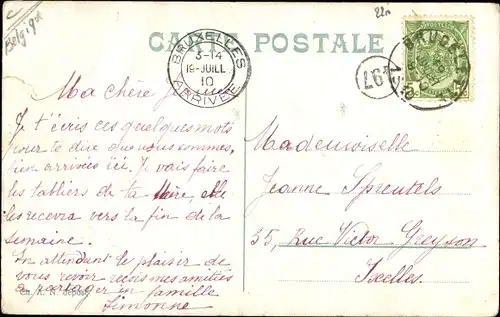 Belgique
22
CARTE POSTALE
BRUXELLES
5-14
19-JUILL
10
ARRIVÉE
97
Ma chère
Je t'écris ces quelques mots
pour te dire que nous sommes
bien arrivées ici. Je vais faire
les tabliers de ta Mère, elle
les recevra vers la fin de la
semaine.
En attendant le plaisir de
vous revoir recois mes amitiés
a partager en famille
Simonne
Mademoiselle
Jeanne Spreutels
35, Rue Victor Greyson
Ixelles.